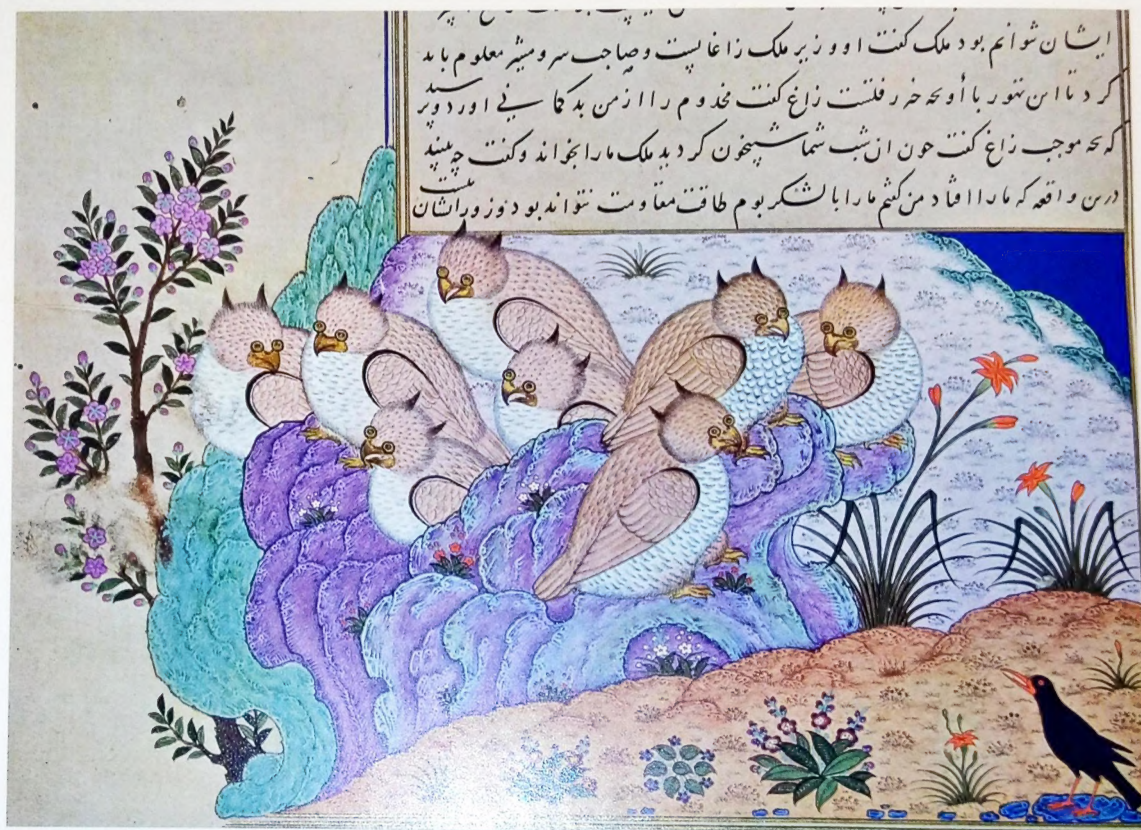 ایشان توانم بود ملک کفت او وزیر ملک زاغانست و صاحب سر و مشیر معلوم باید
کرد تا این تهور با او بچه رفتست زاغ کفت مخدوم را از من بد کمانی اورد و پرسید
که بچه موجب زاغ کفت چون ان شب شما شبیخون کردید ملک ما را بخواند و کفت چه بینید
درین واقعه که ما را افتاد من کفتم ما را با لشکر بوم طاقت مقاومت نتواند بود و زور ایشان